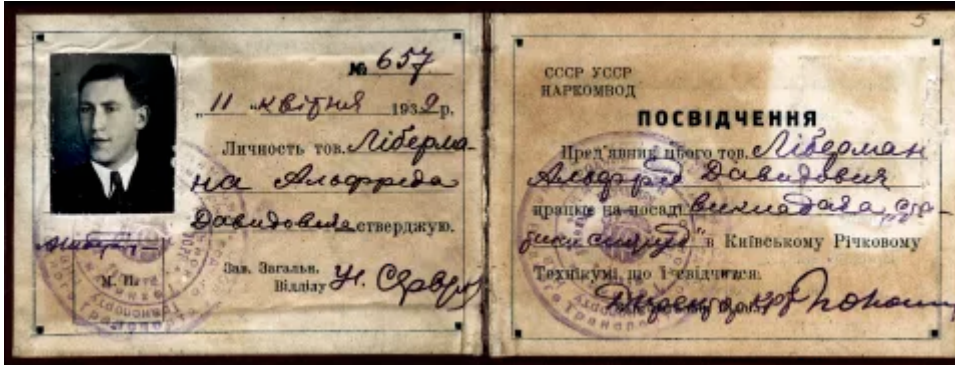 № 657
„11" квітня 1939 р.
Личность тов. Ліберма-
на Альфреда
Давидовича стверджую.
М. П.
Зав. Загальн.
Відділу
5
СССР УССР
НАРКОМВОД
ПОСВІДЧЕННЯ
Пред'явник цього тов. Ліберман
Альфред Давидович
працює на посаді викладача „ста-
тики " в Київському Річковому
Технікумі, що і свідчиться.
Директор